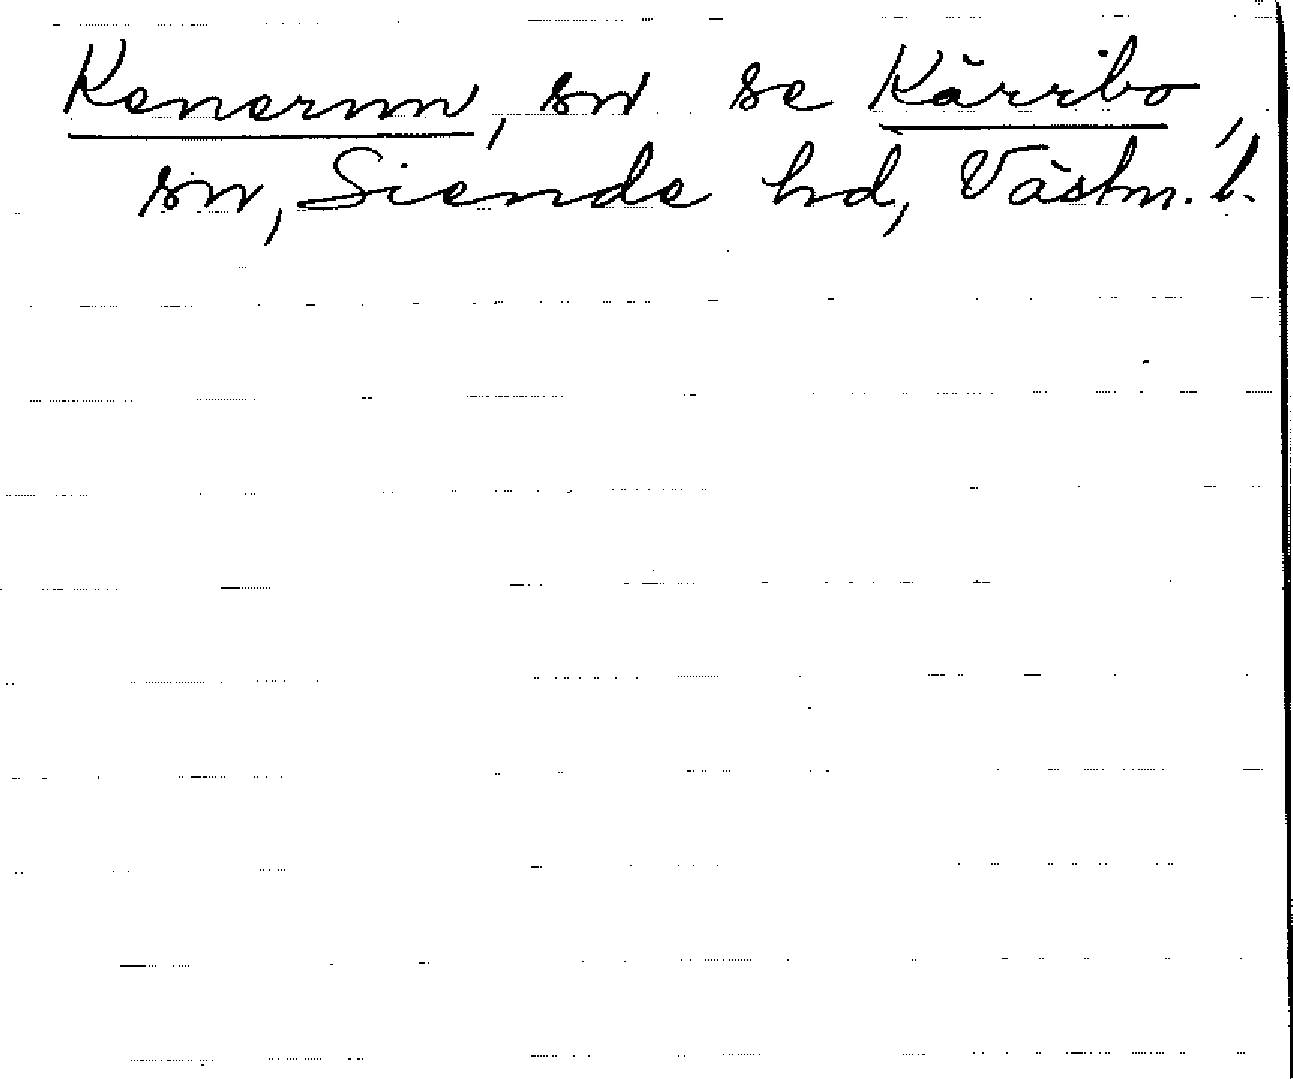 Kenerum, sn se Kärrbo
sn, Siende hd, Västm. l.